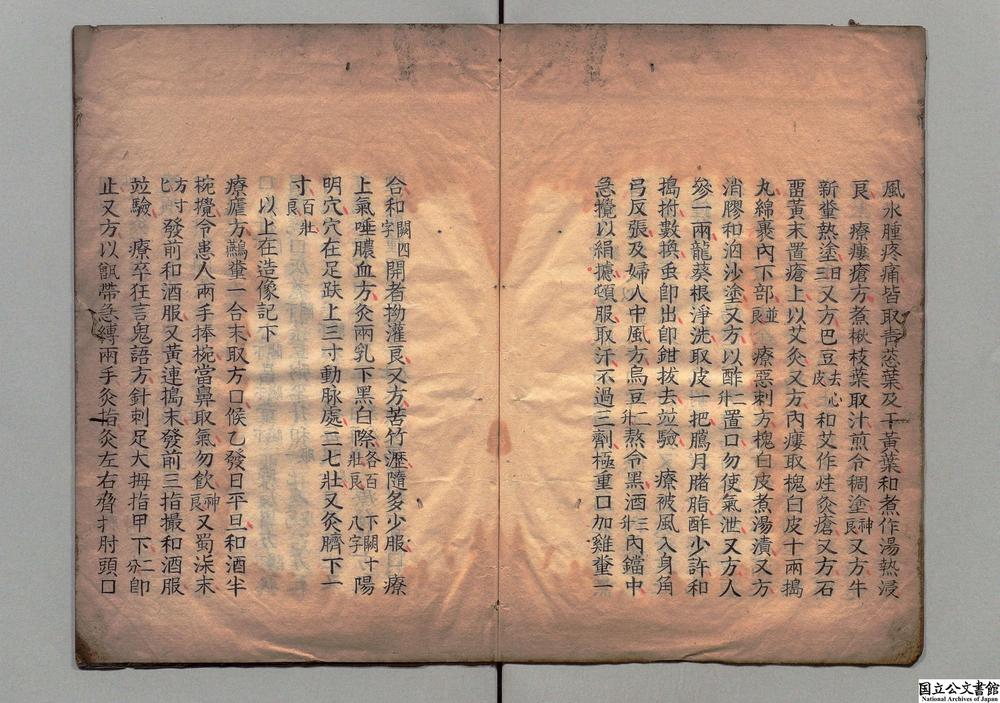 風水腫疼痛皆取青蒁葉及干黃葉和煮作湯熱浸
良　療瘻瘡方煮楸枝葉取汁煎令稠塗神良又方牛
新糞熱塗日三又方巴豆去心皮和艾作炷灸瘡又方石
㽞黃末置瘡上以艾灸又方內瘻取槐白皮十兩搗
丸綿褁內下部並良　療惡刺方槐白皮煮湯漬又方
消膠和洄沙塗又方以酢二升置口勿使氣泄又方人
參一兩龍葵根淨洗取皮一把臈月䐗脂酢少許和
搗拊數換虫卽出卽鉗拔去並驗　療被風入身角
弓反張及婦人中風方烏豆二升熬令黑酒三升內鐺中
急攪以絹攄頓服取汗不過三劑極重口加雞糞二
合和闕四字開者拗灌良又方苦竹瀝隨多少服　療
上氣唾膿血方灸兩乳下黑白際各百壯良　下闕十八字陽
明穴穴在足趺上三寸動脉處二七壯又灸臍下一
寸百壯良
　以上在造像記下
療瘧方鷰糞一合末取方口候乙發日平旦和酒半
椀攪令患人兩手捧椀當鼻取氣勿飲神良又蜀柒末
方寸匕發前和酒服又黃連搗末發前三指撮和酒服
並驗　療卒狂言鬼語方針刺足大拇指甲下二分卽
止又方以甑帶急縛兩手灸指灸左右脅扌肘頭口
国立公文書館
National Archives of Japan